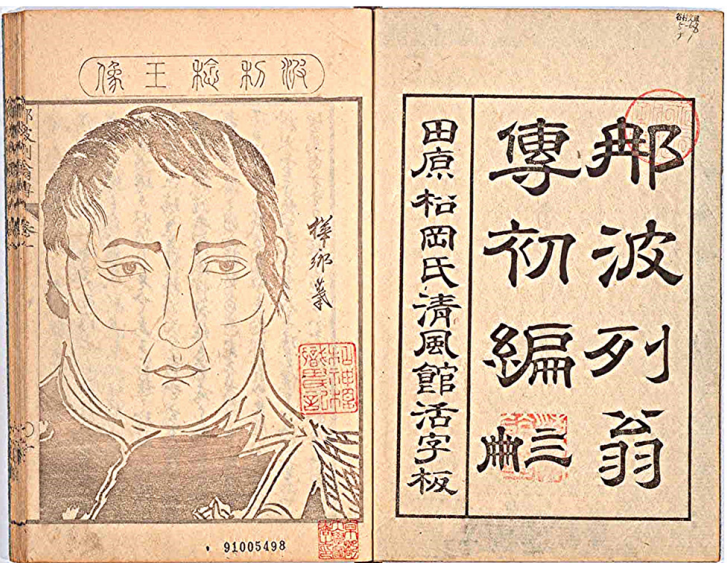 那波列翁
傳初編
三冊
田原松岡氏清風館活字板
波利稔王像
椿
91005498